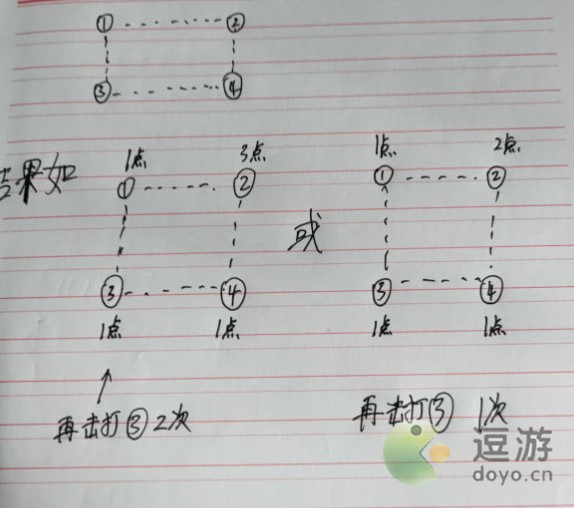 ① ②
③ ④
结果如
1点 3点
① ②
③ ④
1点 1点
或
1点 2点
① ②
③ ④
1点 1点
再击打③2次
再击打③ 1次
逗游
doyo.cn